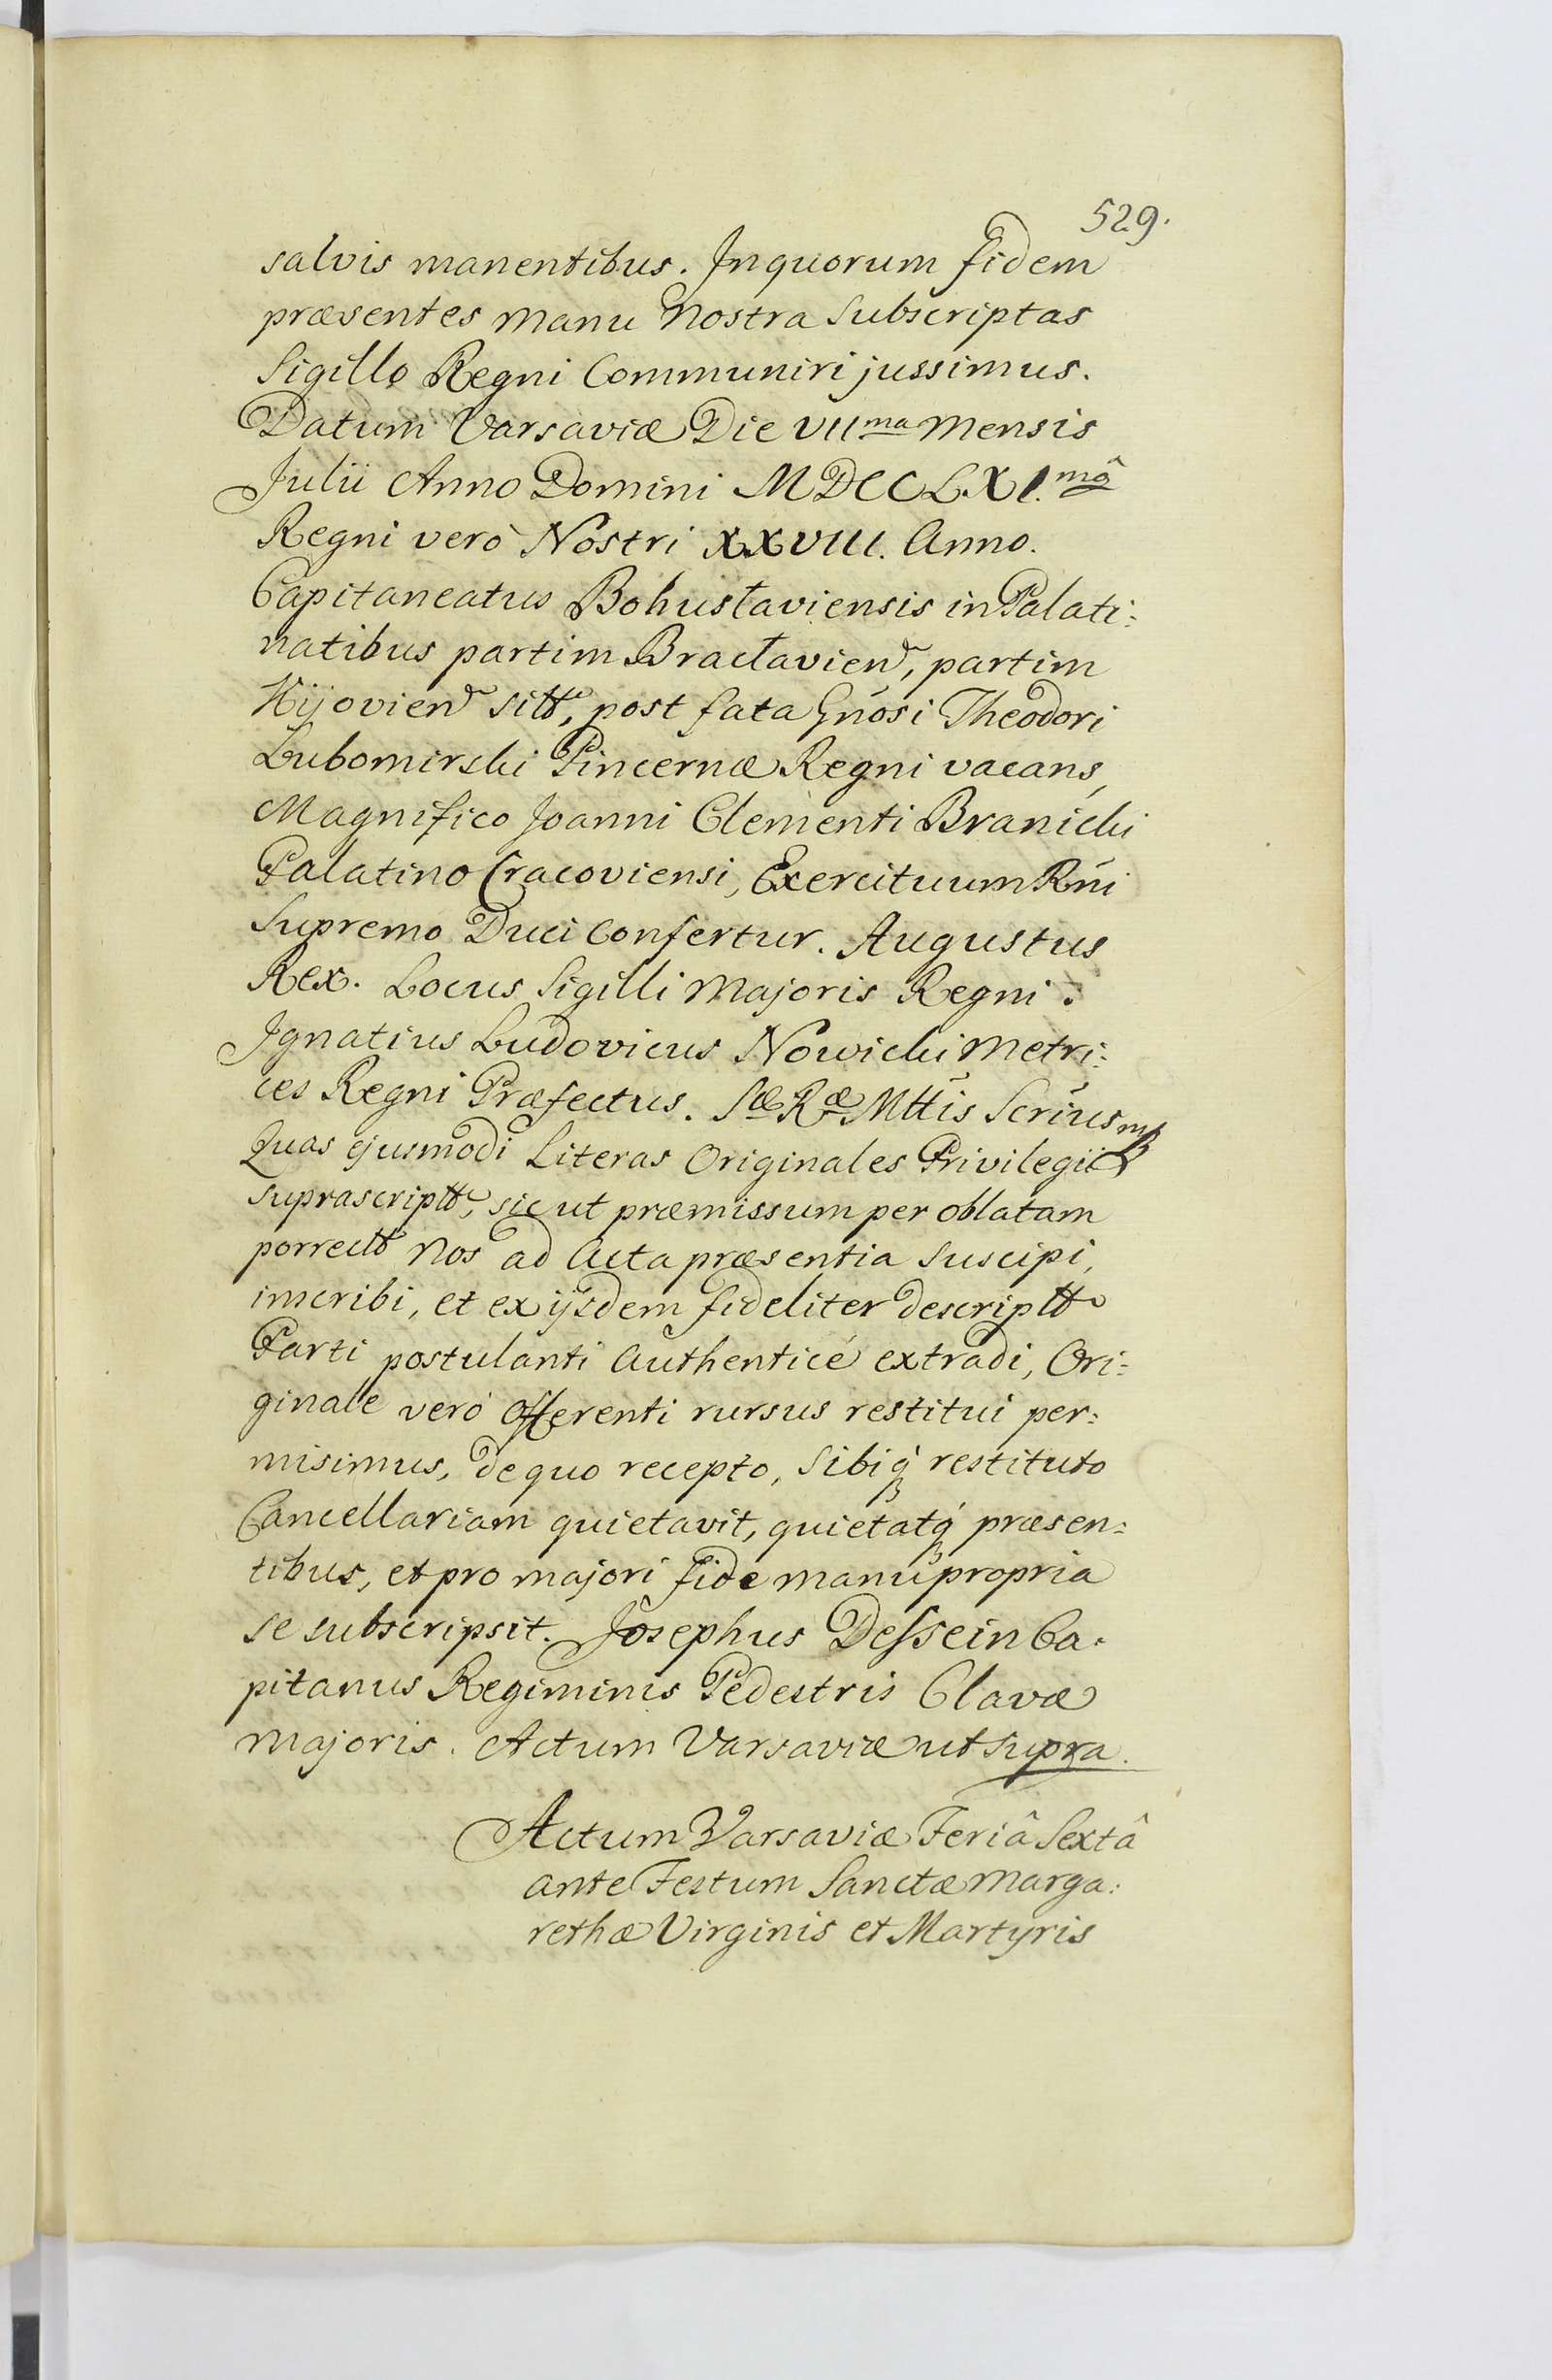 529.
salvis manentibus. In quorum fidem
præsentes manu Nostra Subscriptas
Sigillo Regni Communiri jussimus.
Datum Varsaviæ Die VII.ma Mensis
Julii Anno Domini MDCCLXI.mô
Regni verò Nostri XXVIII. Anno.
Capitaneatus Bohuslaviensis in Palati:
natibus partim Braclavien, partim
Kijovien sitt, post fata Gnosi Theodori
Lubomirski Pincernæ Regni vacans,
Magnifico Joanni Clementi Branicki
Palatino Cracoviensi, Exercituum Rńi
Supremo Duci Confertur. Augustus
Rex. Locus Sigilli Majoris Regni.
Ignatius Ludovicus Nowicki Metri:
ces Regni Præfectus. Sæ Ræ Mttis Scrius mp
Quas ejusmodi Literas Originales Privilegii
suprascriptt, sic ut præmissum per oblatam
porrectt Nos ad Acta præsentia suscipi,
inscribi, et ex ijsdem fideliter descriptt
Parti postulanti Authenticé extradi, Ori:
ginale veró Offerenti rursus restitui per:
misimus, de quo recepto, sibiq́ restituto
Cancellariam quietavit, quietatq́ præsen:
tibus, et pro majori fide manu propria
se subscripsit. Josephus Dessein Ca:
pitanus Regiminis Pedestris Clavæ
Majoris. Actum Varsaviæ ut supra.
Actum Varsaviæ Feriâ Sextâ
ante Festum Sanctæ Marga:
rethæ Virginis et Martyris